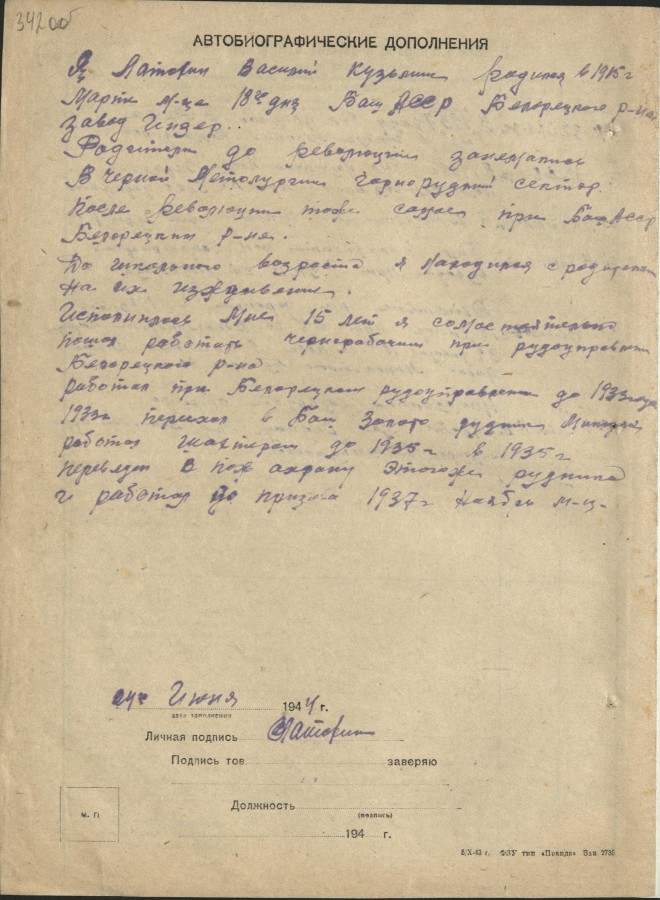 342об
АВТОБИОГРАФИЧЕСКИЕ ДОПОЛНЕНИЯ
Я, Латохин Василий Кузьмич родился в 1915 г
Марта М-ца 18го дня Баш АССР Белорецкого р-на
завод Инзер.
Родители до революции занемались
В черной Металургии чорнорудный сектор.
после революции тоже самое при БашАССР
Белорецким р-не.
До школьного возроста я находился с родителями
на их иждивение.
Исполнилось Мне 15 лет я сомостоятельно
пошол работать чернорабочим при рудоуправлении
Белорецкого р-на
работал при Белорецком рудоуправлении до 1933 года
1933г перихал в Баш золото рудник
работал шахтером до 1935г в 1935г
переведен в пож охрану этогоже рудника
и работал до призыва 1937г Наябь м-ц.
Июня 1944 г.
дата заполнения
Личная подпись Латохин
Подпись тов. заверяю
Должность
(подпись)
м. п.
194 г.
5/X-43 г. ФЗУ тип «Победа» Зак. 2735